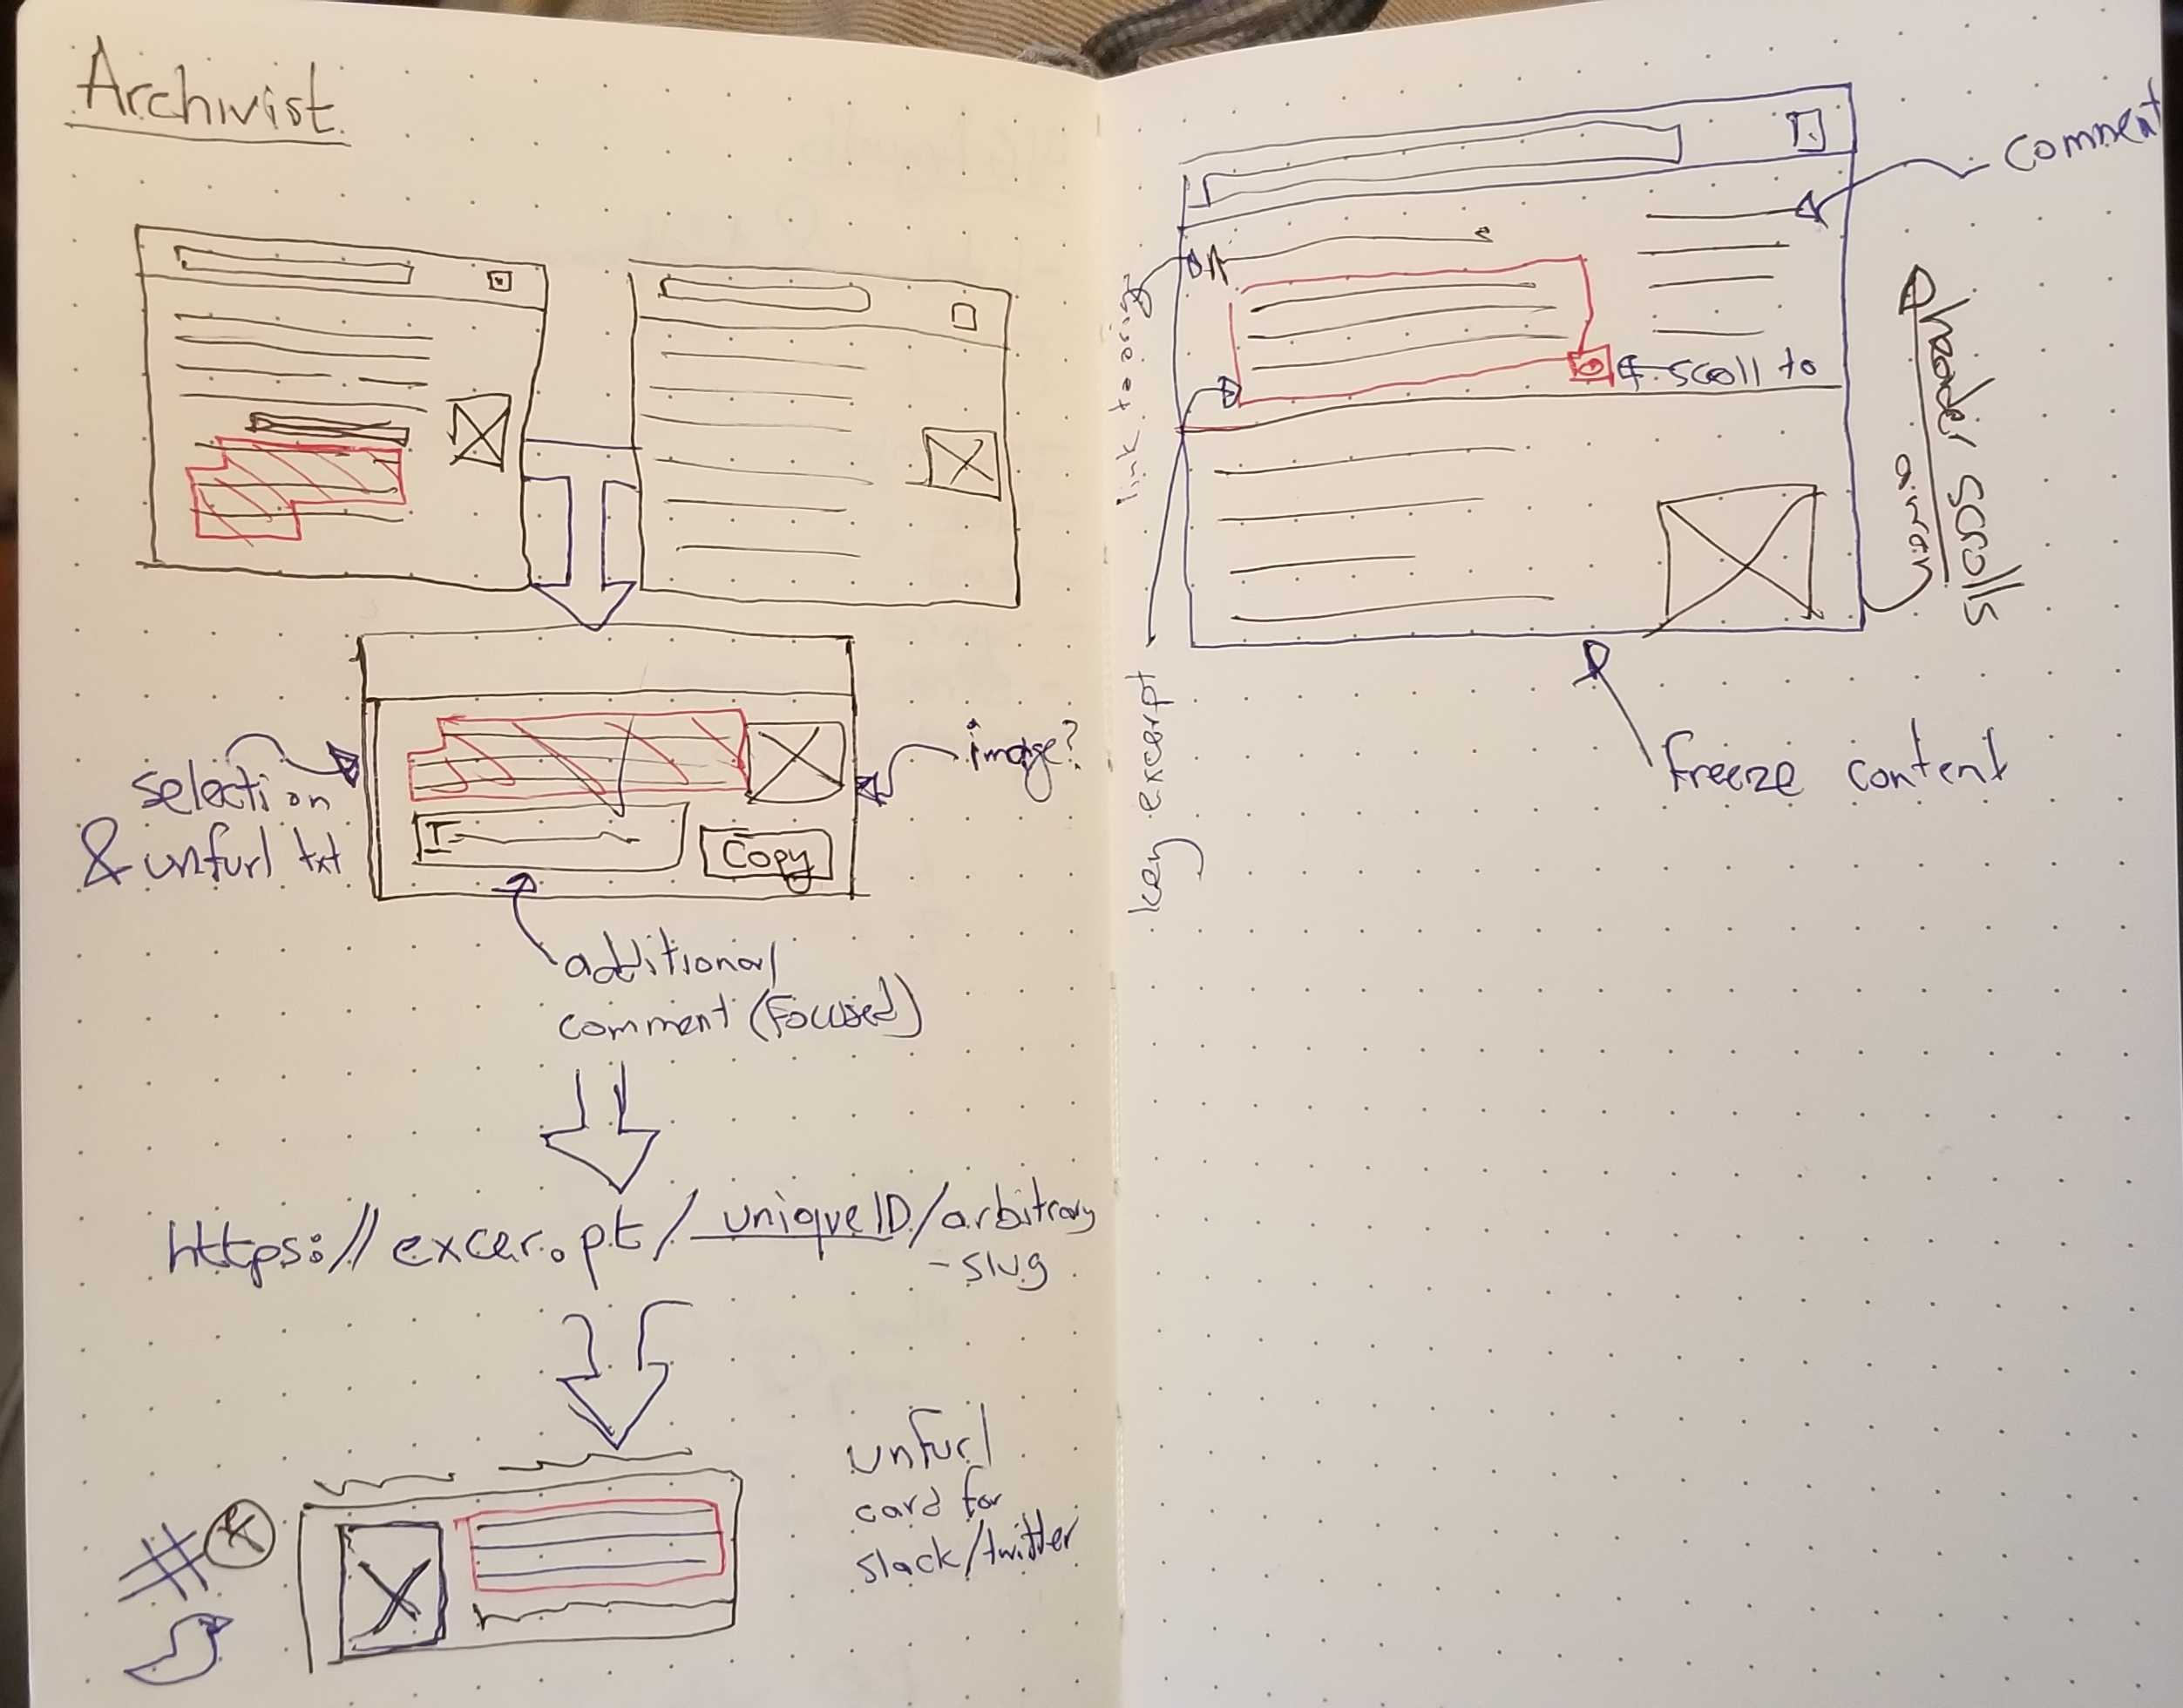 Archivist
selection
& unfurl txt
image?
Copy
additional
comment (Focused)
https://excer.pt/uniqueID/arbitrary
-slug
unfurl
card for
slack/twitter
comment
link to orig
scroll to
header scrolls
away
key excerpt
freeze content